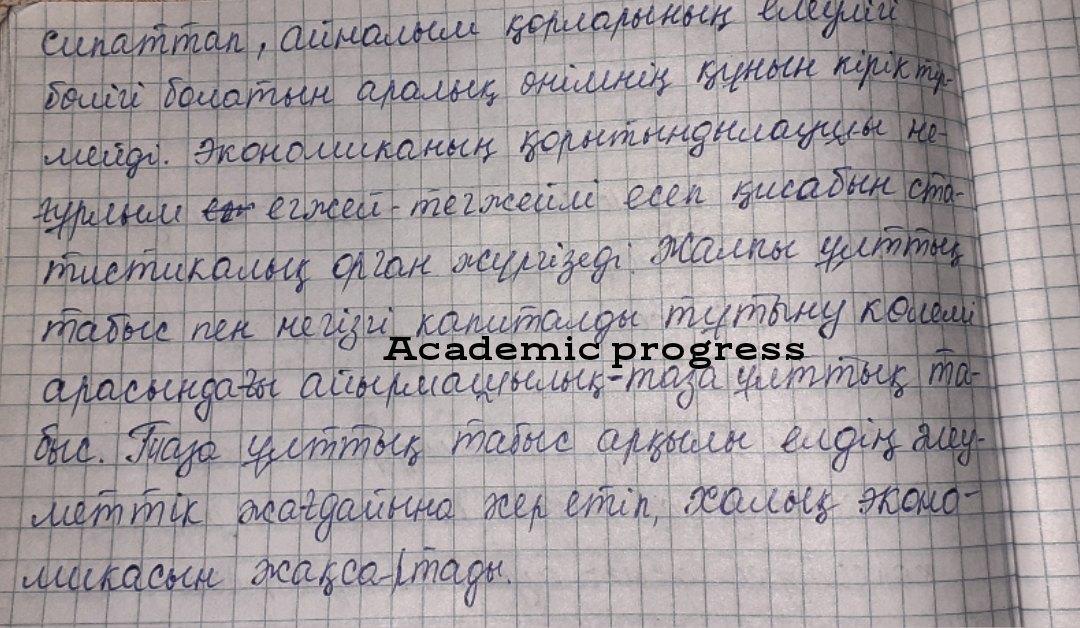 сипаттап, айналым қорларының елеулі
бөлігі болатын аралық өнімнің құнын кірікту-
мейді. Экономиканың қорытындылаушы не-
ғұрлым егжей-тегжейлі есеп қисабын ста-
тистикалық орган жүргізеді. Жалпы ұлттық
табыс пен негізгі капиталды тұтыну көлемі
Academic progress
арасындағы айырмашылық-таза ұлттық та-
быс. Таза ұлттық табыс арқылы елдің әлеу-
меттік жағдайына жер етіп, халық эконо-
микасын жақсартады.